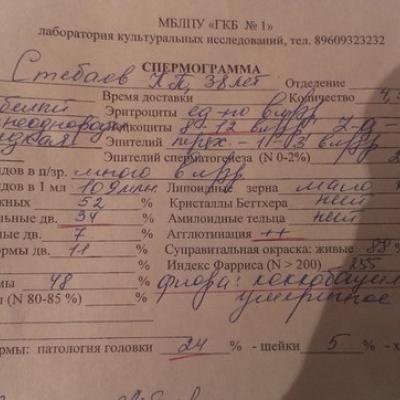 МБЛПУ «ГКБ № 1»
лаборатория культуральных исследований, тел. 89609323232
СПЕРМОГРАММА
38 лет Отделение
белый Время доставки Количество 4,
неоднородн Эритроциты ед-но в п/зр
Лейкоциты 8-12 в п/зр
Эпителий 1-3 в п/зр
Эпителий сперматогенеза (N 0-2%) 2
идов в п/зр. много в п/зр
идов в 1 мл 109 млн. Липоидные зерна мало
жных 52 % Кристаллы Беттхера нет
льные дв. 34 % Амилоидные тельца нет
ые дв. 7 % Агглютинация ++
ормы дв. 11 % Суправитальная окраска: живые 88 %
% Индекс Фарриса (N > 200) 255
мы 48 % Флора: коккобацил
ы (N 80-85 %) % умеренное
рмы: патология головки 24 % - шейки 5 % - х